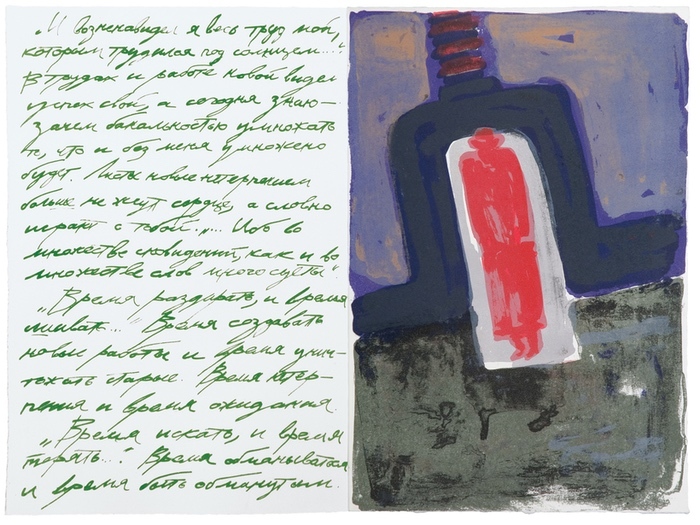 „И возненавидел я весь труд мой,
которым трудился под солнцем...“
В трудах и работе новой видел
успех свой, а сегодня знаю —
зачем банальностью умножать
то, что и без меня умножено
будет. Листы новые нетерпением
больше не жгут сердце, а словно
играют с тобой. „... Ибо во
множестве сновидений, как и во
множестве слов много суеты“
„Время раздирать, и время
сшивать...“ Время создавать
новые работы и время унич-
тожать старые. Время нетер-
пения и время ожидания.
„Время искать, и время
терять...“. Время обманываться
и время быть обманутым.